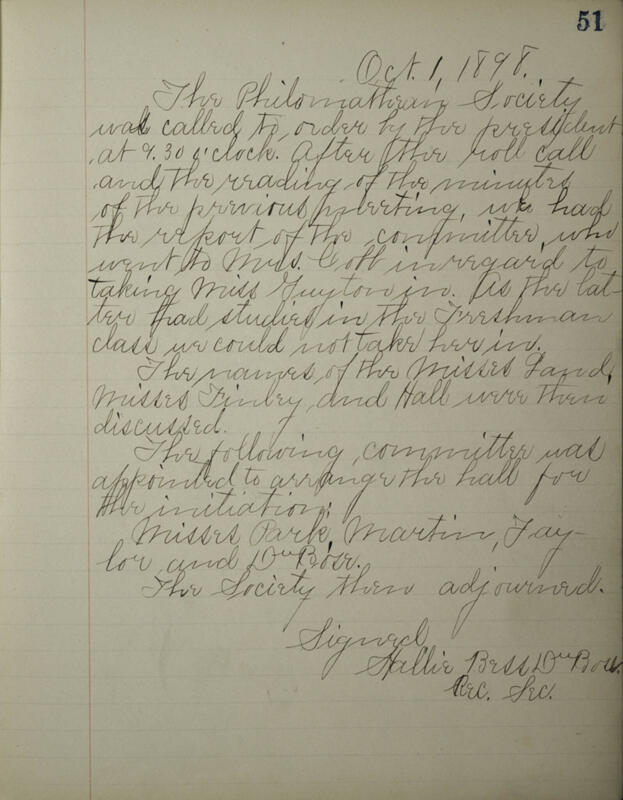 51
Oct. 1, 1898.
The Philomathean Society
was called to order by the president
at 9.30 o'clock. After the roll call
and the reading of the minutes
of the previous meeting, we had
the report of the committee, who
went to Mrs. Goff in regard to
taking Miss Guyton in. As the lat-
ter had studies in the Freshman
class we could not take her in.
The names of the Misses Land,
Misses Finley and Hall were then
discussed.
The following committee was
appointed to arrange the hall for
the initiation:
Misses Park, Martin, Tay-
lor and DuBose.
The Society then adjourned.
Signed
Hallie Bess DuBose.
Rec. Sec.